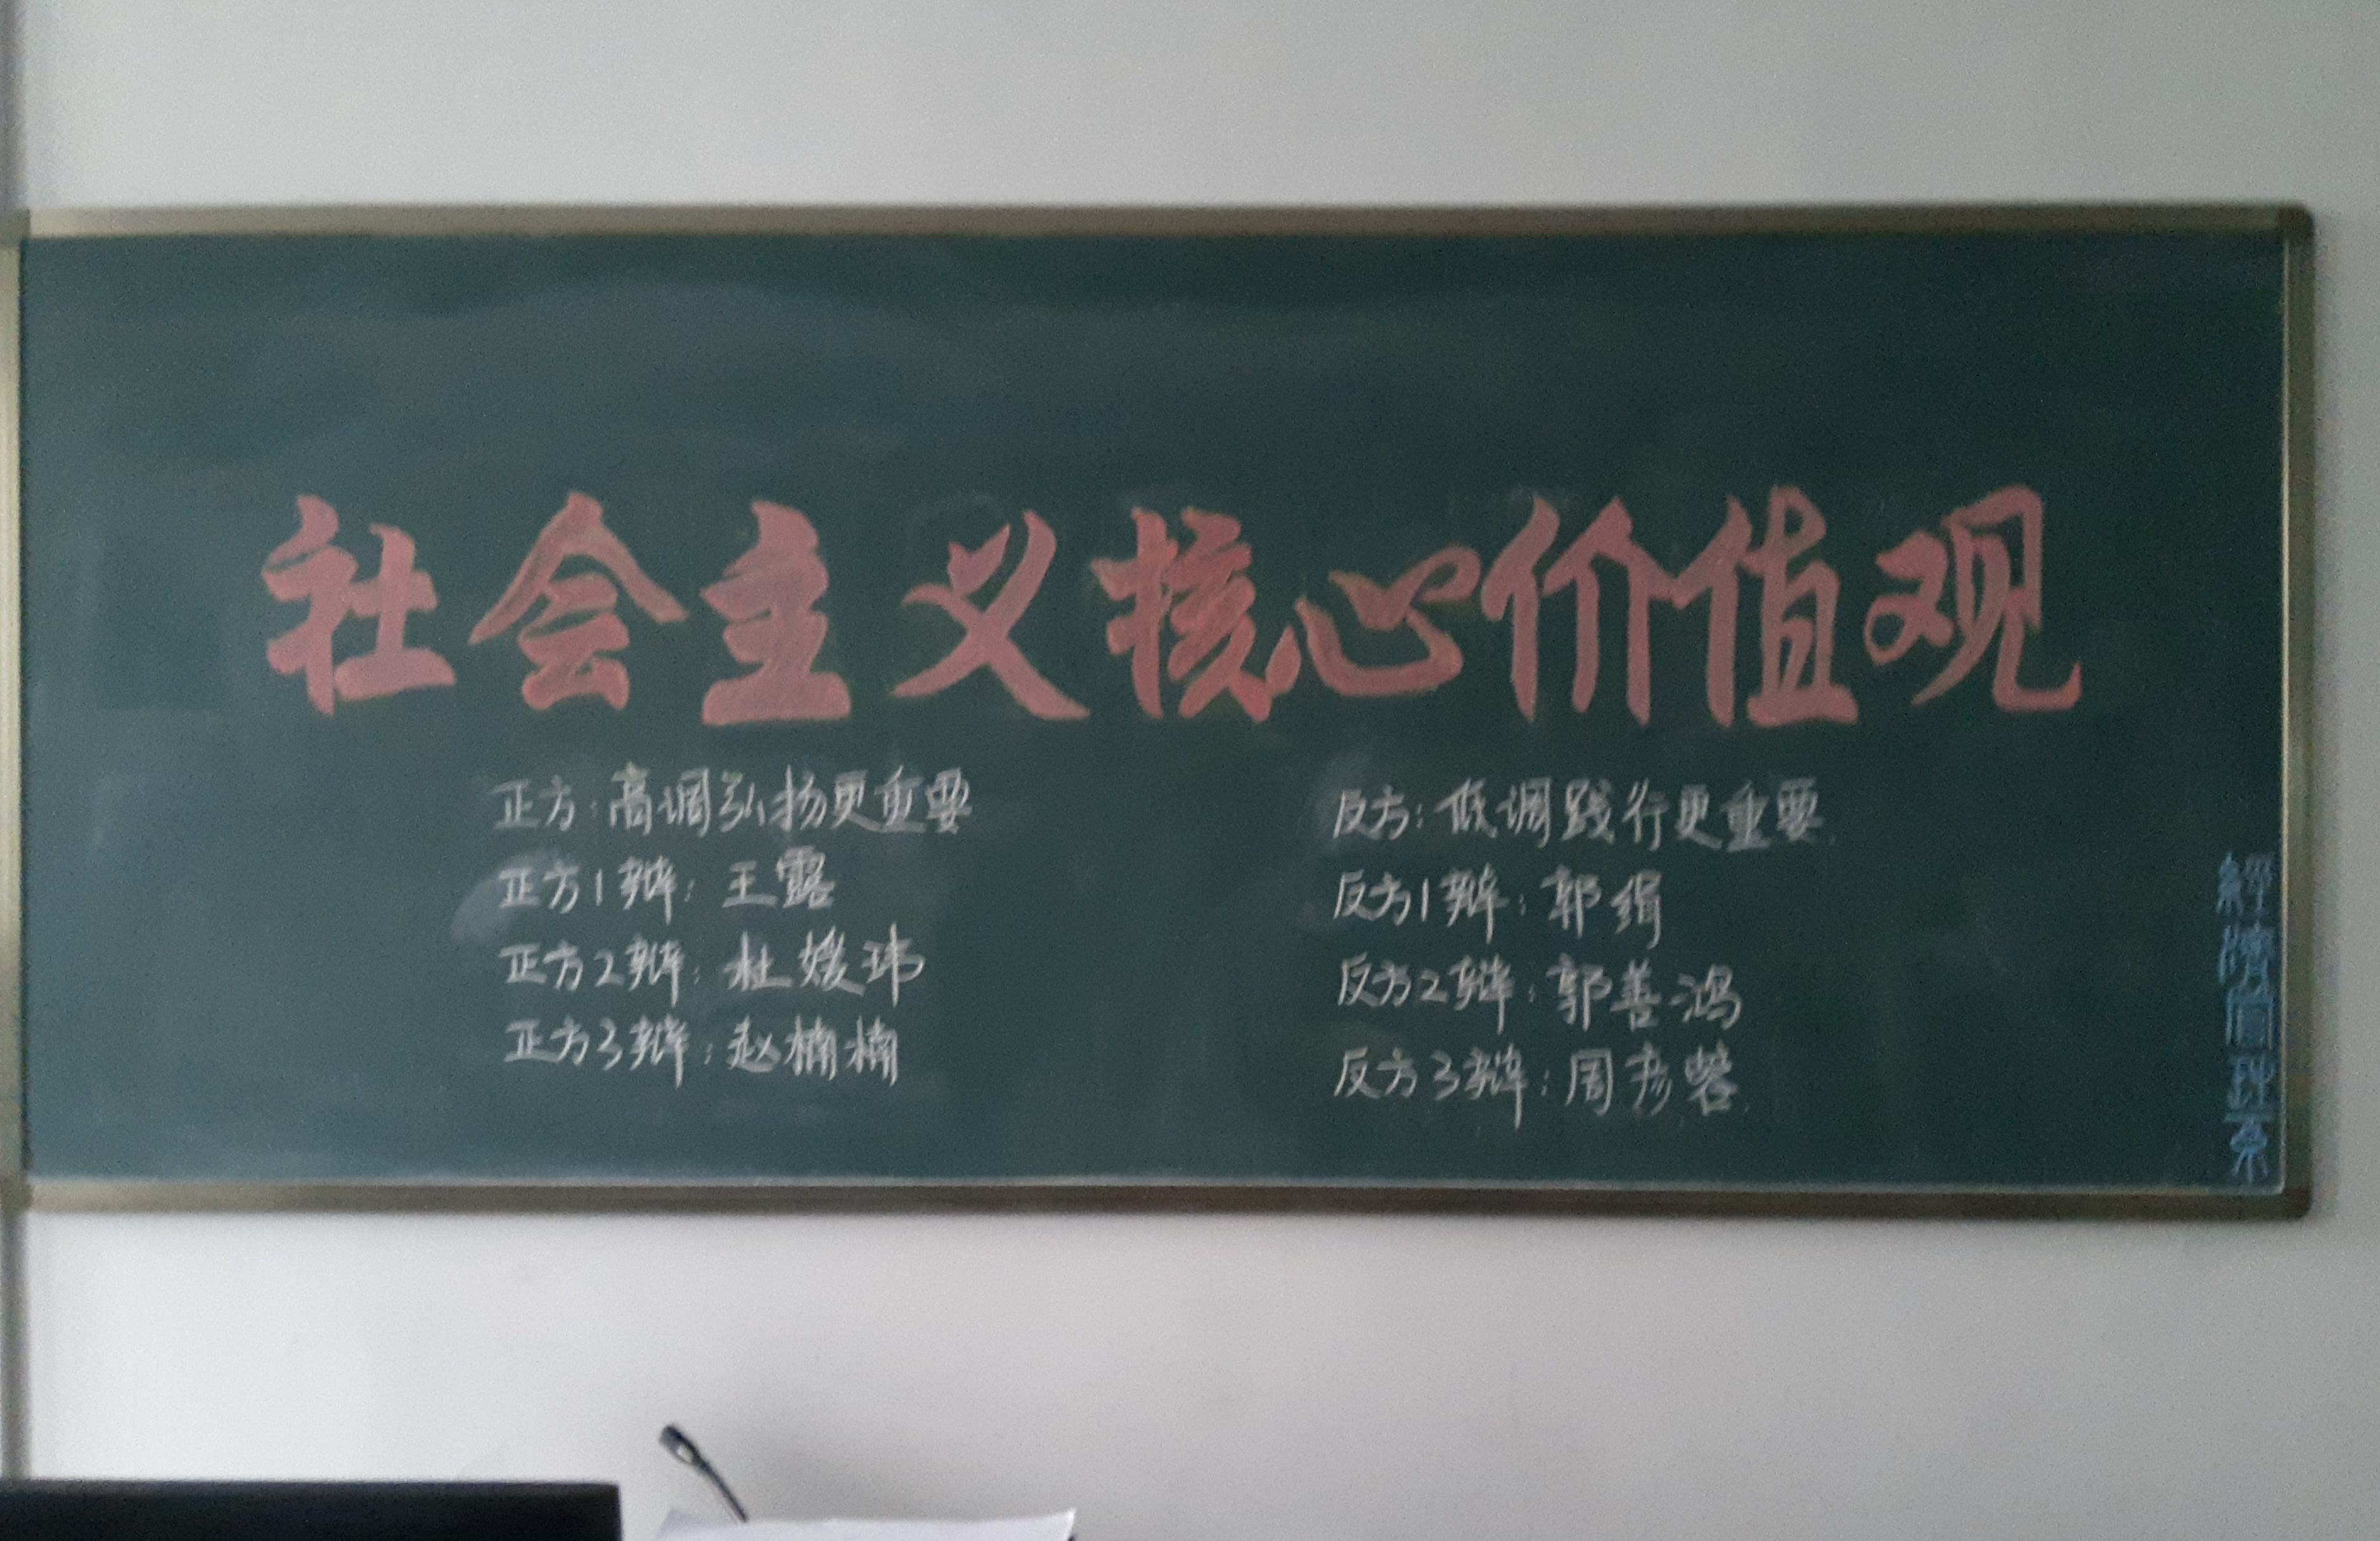 社会主义核心价值观
正方：高调弘扬更重要
正方1辩：王露
正方2辩：杜媛玮
正方3辩：赵楠楠
反方：低调践行更重要
反方1辩：郭绢
反方2辩：郭善鸿
反方3辩：周彦
經濟管理系